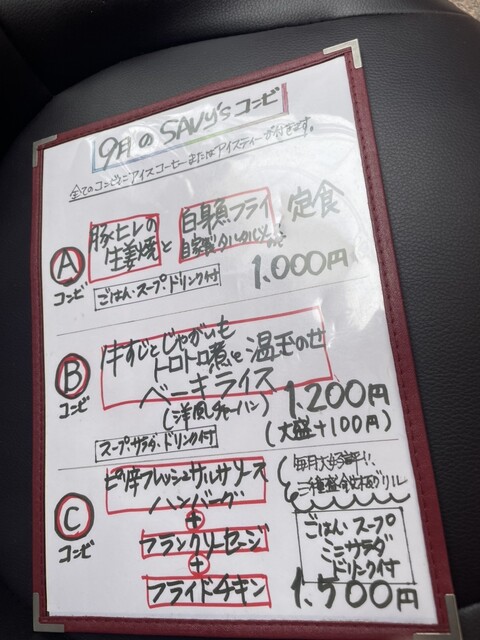 9月のSAVy'sコンビ
全てのコンビにアイスコーヒーまたはアイスティーが付きます。
A コンビ
豚ヒレの生姜焼と
白身魚フライ
自家製タルタルソース
定食
ごはん・スープ・ドリンク付
1.000円
B コンビ
牛すじとじゃがいも
トロトロ煮と温玉のせ
ベーキライス
(洋風チャーハン)
1.200円
スープ・サラダ・ドリンク付
(大盛+100円)
C コンビ
ピリ辛フレッシュサルサソース
ハンバーグ
+
フランクソーセージ
+
フライドチキン
毎月大好評!!
ごはん・スープ
ミニサラダ
ドリンク付
1.500円